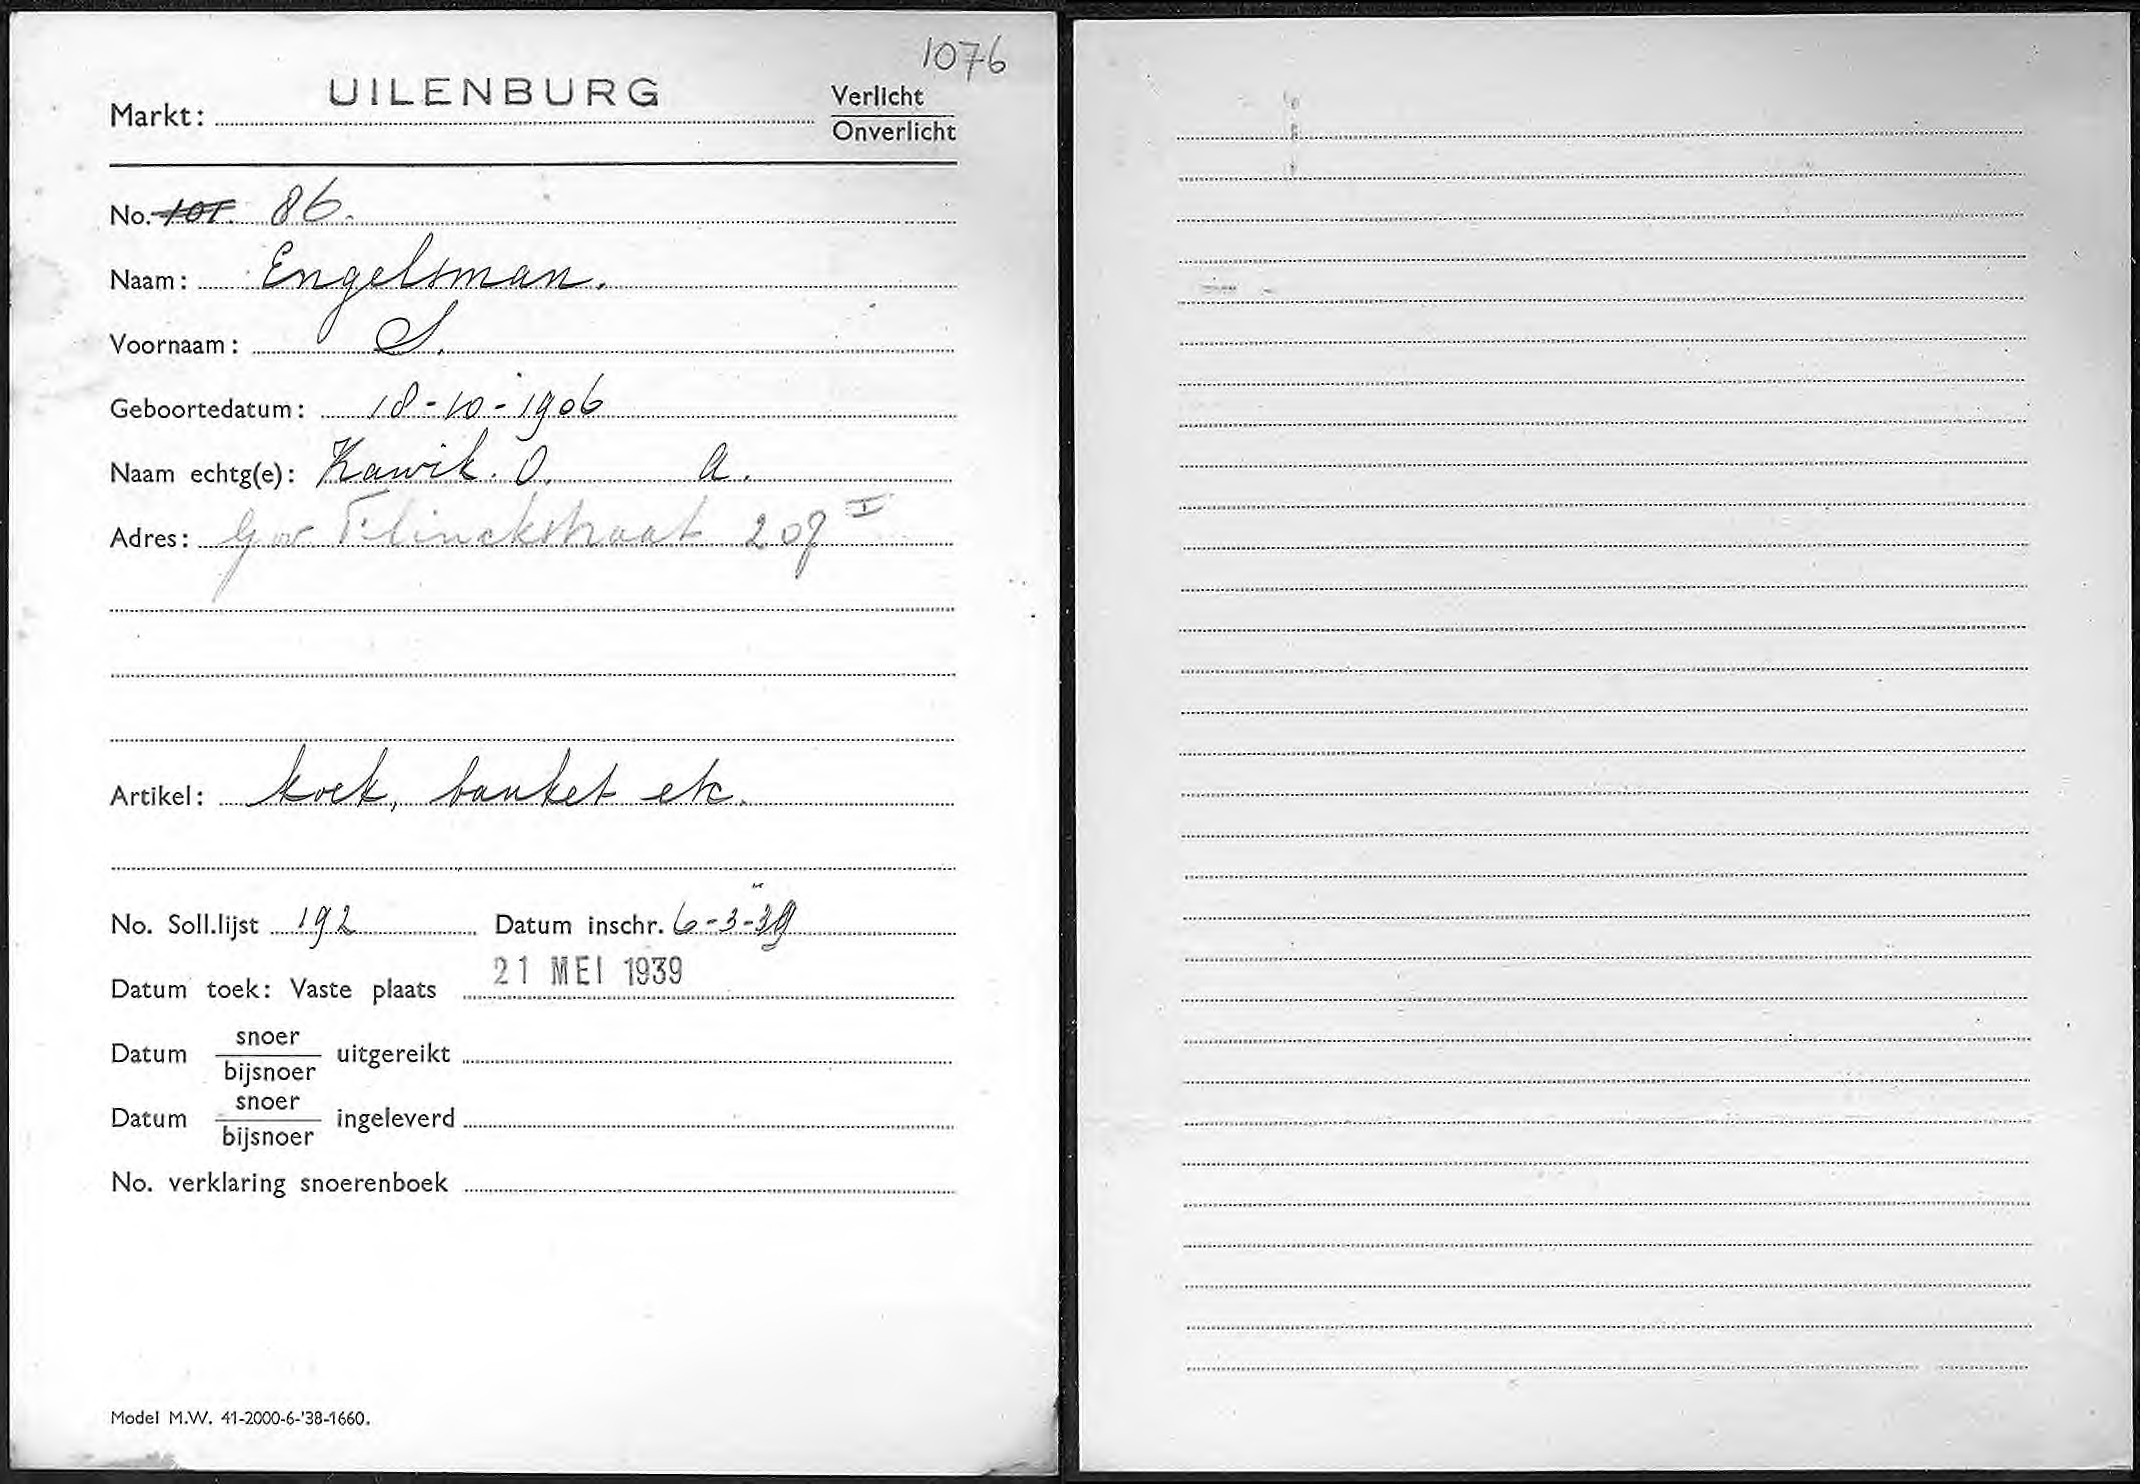 1076
Markt: UILENBURG Verlicht
Onverlicht
No. 101. 86.
Naam: Engelsman.
Voornaam: S.
Geboortedatum: 18-10-1906
Naam echtg(e): O. A.
Adres: Gov Flinckstraat 207 I
Artikel: koek, banket etc.
No. Soll.lijst 192 Datum inschr. 6-3-39
Datum toek: Vaste plaats 21 MEI 1939
Datum snoer
bijsnoer uitgereikt
Datum snoer
bijsnoer ingeleverd
No. verklaring snoerenboek
Model M.W. 41-2000-6-'38-1660.